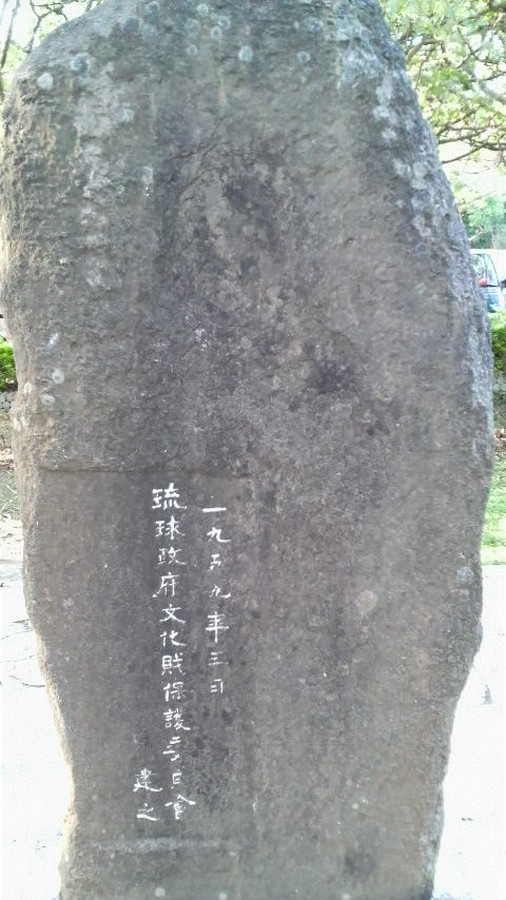 一九五九年三月
琉球政府文化財保護委員會
建之